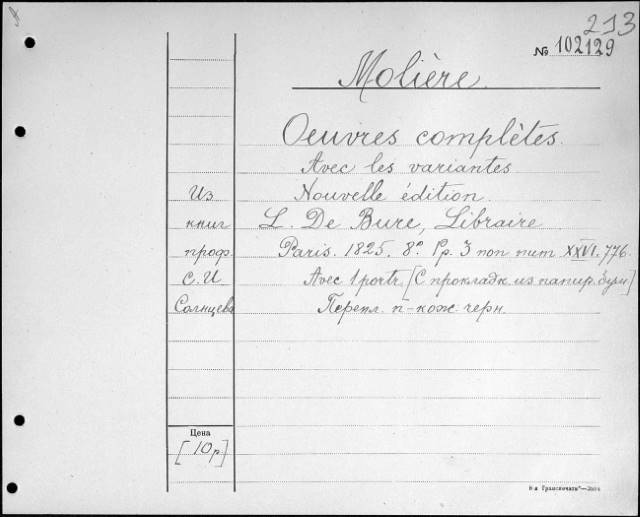 213
№ 102129
Molière.
Oeuvres complètes.
Avec les variantes
Из Nouvelle édition.
книг L. De Bure, Libraire
проф. Paris. 1825. 8º. Pp. 3 non num. XXVI. 776.
С. И. Avec 1 portr. [С прокладк. из папир. бум.]
Солнцева Перепл. п-кож. черн.
Цена
[10 р.]